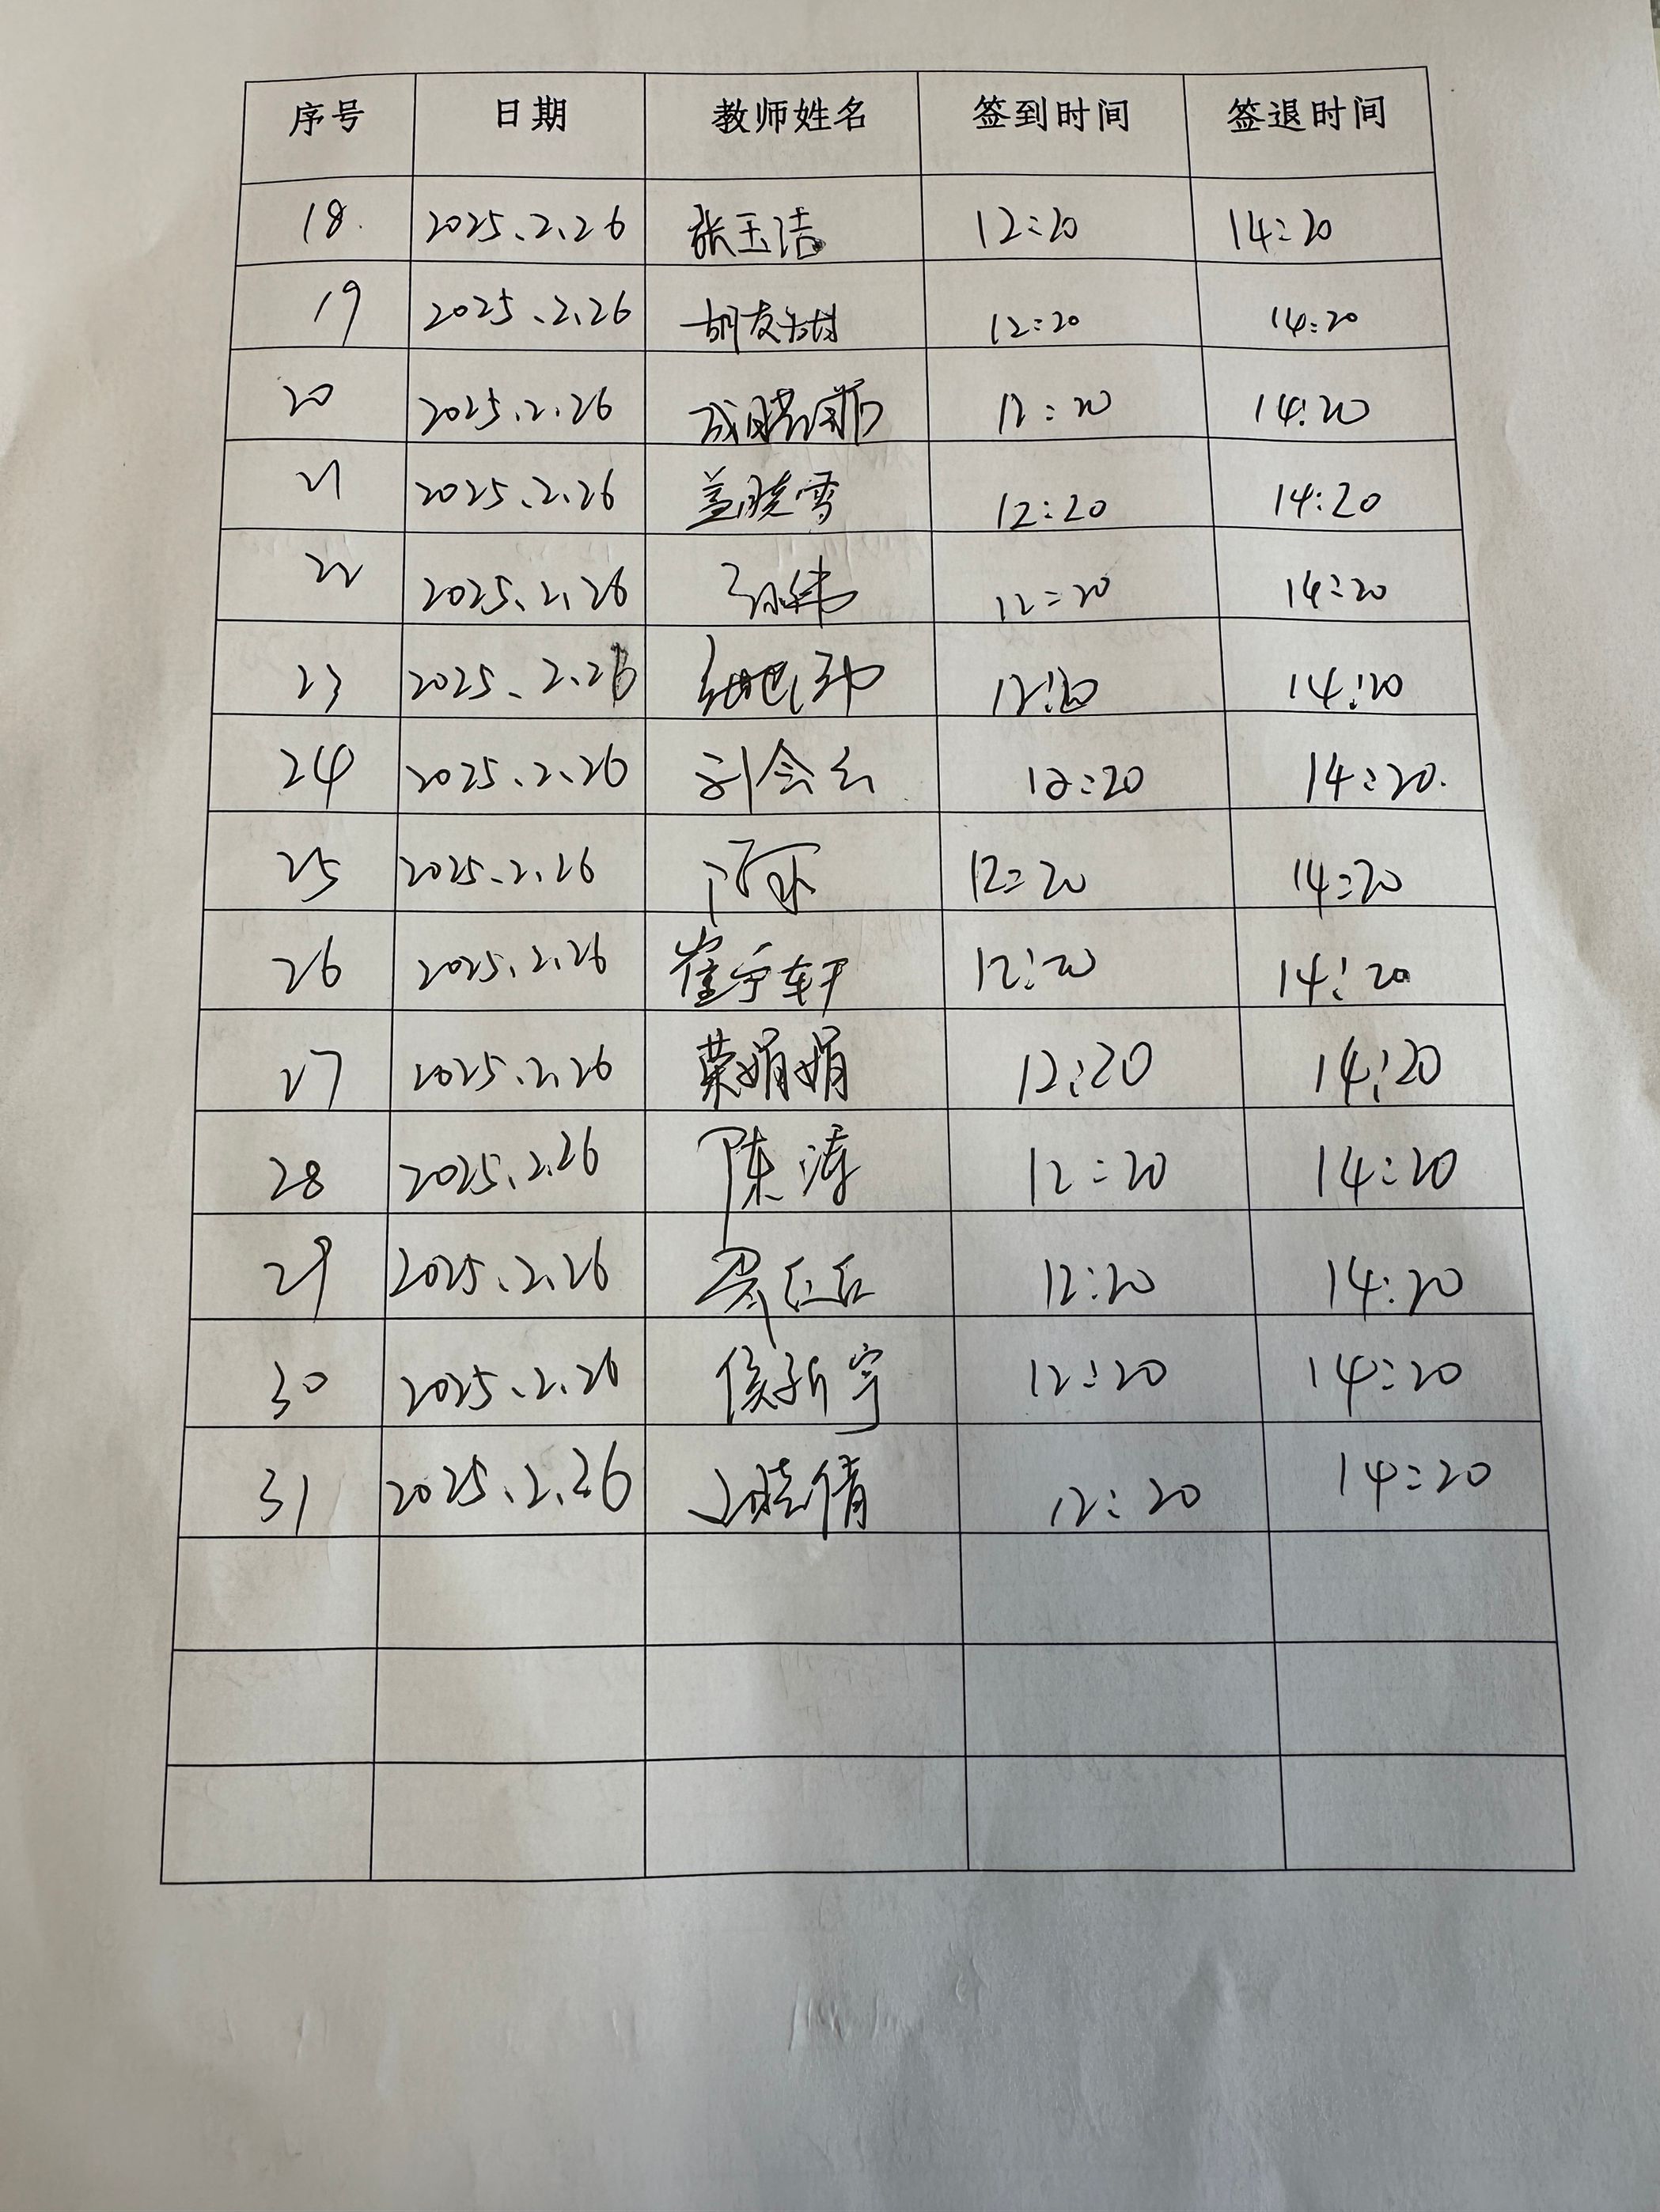 序号 日期 教师姓名 签到时间 签退时间
18. 2025.2.26 张玉洁 12:20 14:20
19 2025.2.26 胡友 12:20 14:20
20 2025.2.26 12:20 14:20
21 2025.2.26 盖晓雪 12:20 14:20
22 2025.2.26 孙伟 12:20 14:20
23 2025.2.26 12:20 14:20
24 2025.2.26 刘会云 12:20 14:20.
25 2025.2.26 12:20 14:20
26 2025.2.26 崔宇轩 12:20 14:20
27 2025.2.26 荣娟娟 12:20 14:20
28 2025.2.26 陈涛 12:20 14:20
29 2025.2.26 12:20 14:20
30 2025.2.26 侯新宇 12:20 14:20
31 2025.2.26 晓倩 12:20 14:20